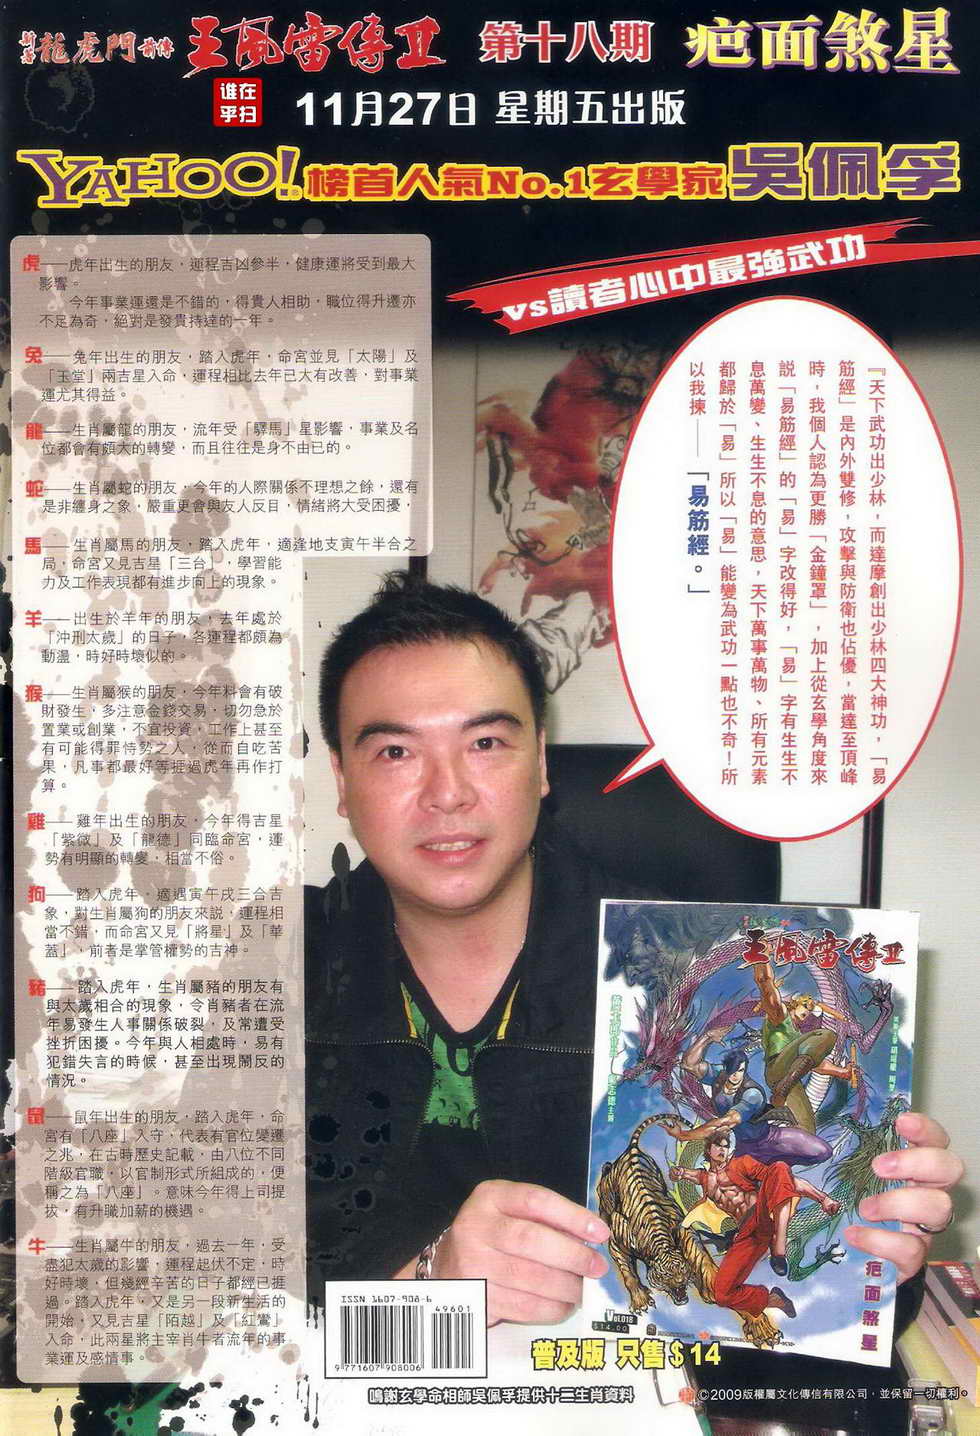 新著龍虎門前傳 王風雷傳II 第十八期 疤面煞星
誰在
乎扫
11月27日 星期五出版
YAHOO!榜首人氣No.1玄學家吳佩孚
vs讀者心中最強武功
『天下武功出少林，而達摩創出少林四大神功，「易
筋經」是內外雙修，攻擊與防衛也佔優，當達至頂峰
時，我個人認為更勝「金鐘罩」，加上從玄學角度來
説「易筋經」的「易」字改得好，「易」字有生生不
息萬變、生生不息的意思，天下萬事萬物、所有元素
都歸於「易」所以「易」能變為武功一點也不奇！所
以我揀——「易筋經。」
虎——虎年出生的朋友，運程吉凶參半，健康運將受到最大
影響。
今年事業運還是不錯的，得貴人相助，職位得升遷亦
不足為奇，絕對是發貴持達的一年。
兔——兔年出生的朋友，踏入虎年，命宮並見「太陽」及
「玉堂」兩吉星入命，運程相比去年已大有改善，對事業
運尤其得益。
龍——生肖屬龍的朋友，流年受「驛馬」星影響，事業及名
位都會有頗大的轉變，而且往往是身不由已的。
蛇——生肖屬蛇的朋友，今年的人際關係不理想之餘，還有
是非纏身之象，嚴重更會與友人反目，情緒將大受困擾，
馬——生肖屬馬的朋友，踏入虎年，適逢地支寅午半合之
局，命宮又見吉星「三台」，學習能
力及工作表現都有進步向上的現象。
羊——出生於羊年的朋友，去年處於
「沖刑太歲」的日子，各運程都頗為
動盪，時好時壞似的。
猴——生肖屬猴的朋友，今年料會有破
財發生，多注意金錢交易，切勿急於
置業或創業，不宜投資，工作上甚至
有可能得罪恃勢之人，從而自吃苦
果，凡事都最好等捱過虎年再作打
算。
雞——雞年出生的朋友，今年得吉星
「紫微」及「龍德」同臨命宮，運
勢有明顯的轉變，相當不俗。
狗——踏入虎年，適遇寅午戌三合吉
象，對生肖屬狗的朋友來説，運程相
當不錯，而命宮又見「將星」及「華
蓋」，前者是掌管權勢的吉神。
豬——踏入虎年，生肖屬豬的朋友有
與太歲相合的現象，令肖豬者在流
年易發生人事關係破裂，及常遭受
挫折困擾。今年與人相處時，易有
犯錯失言的時候，甚至出現鬧反的
情況。
鼠——鼠年出生的朋友，踏入虎年，命
宮有「八座」入守，代表有官位變遷
之兆，在古時歷史記載，由八位不同
階級官職，以官制形式所組成的，便
稱之為「八座」。意味今年得上司提
拔，有升職加薪的機遇。
牛——生肖屬牛的朋友，過去一年，受
盡犯太歲的影響，運程起伏不定，時
好時壞，但幾經辛苦的日子都經已捱
過。踏入虎年，又是另一段新生活的
開始，又見吉星「陌越」及「紅鸞」
入命，此兩星將主宰肖牛者流年的事
業運及感情事。
王風雷傳II
疤面煞星
Vol.018
$14.00
ISSN 1607-908-6
49601
9 771607 908006
普及版 只售$14
鳴謝玄學命相師吳佩孚提供十二生肖資料
©2009版權屬文化傳信有限公司，並保留一切權利。